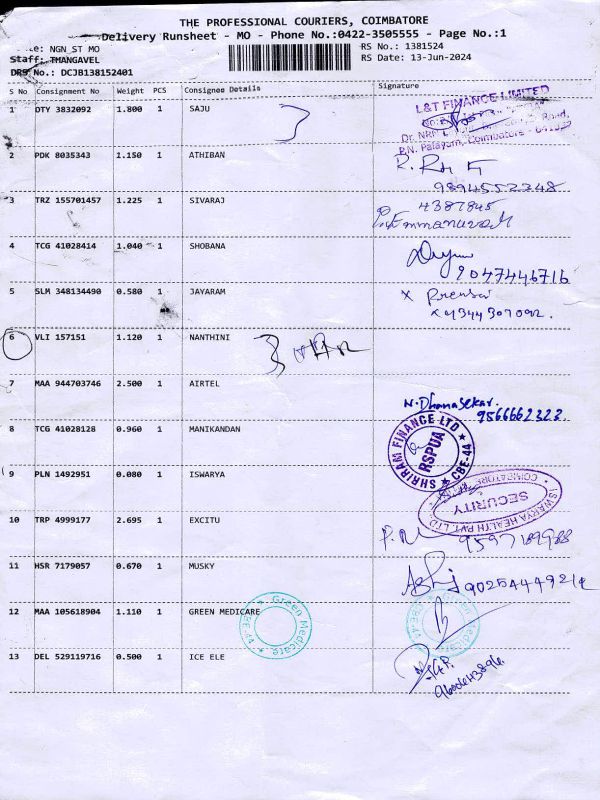 THE PROFESSIONAL COURIERS, COIMBATORE
Delivery Runsheet - MO - Phone No.:0422-3505555 - Page No.:1
e: NGN_ST MO
RS No.: 1381524
Staff: THANGAVEL
RS Date: 13-Jun-2024
DRS No.: DCJB138152401
S No Consignment No Weight PCS Consignee Details Signature
1 DTY 3832092 1.800 1 SAJU
L&T FINANCE LIMITED
Dr. NRN Road,
P.N. Palayam, Coimbatore - 641037
2 PDK 8035343 1.150 1 ATHIBAN
9894552348
3 TRZ 155701457 1.225 1 SIVARAJ
4387845
4 TCG 41028414 1.040 1 SHOBANA
9047446716
5 SLM 348134490 0.580 1 JAYARAM
x
x 9344307092.
6 VLI 157151 1.120 1 NANTHINI
7 MAA 944703746 2.500 1 AIRTEL
N. Dhanasekar.
9566662323
8 TCG 41028128 0.960 1 MANIKANDAN
SHRIRAM FINANCE LTD
RSPUA
CBE-44
9 PLN 1492951 0.080 1 ISWARYA
ISWARYA HEALTH PVT. LTD
SECURITY
COIMBATORE
10 TRP 4999177 2.695 1 EXCITU
9597189988
11 HSR 7179057 0.670 1 MUSKY
12 MAA 105618904 1.110 1 GREEN MEDICARE
Green Medicare
CBE-44
13 DEL 529119716 0.500 1 ICE ELE